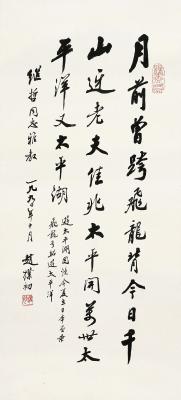 月前曾跨飛龍背今日千
山迎老夫佳兆太平開萬世太
平洋又太平湖
遊太平湖因憶今夏去日本
飛龍号船過太平洋
繼哲同志雅教
一九九〇年十月 趙樸初